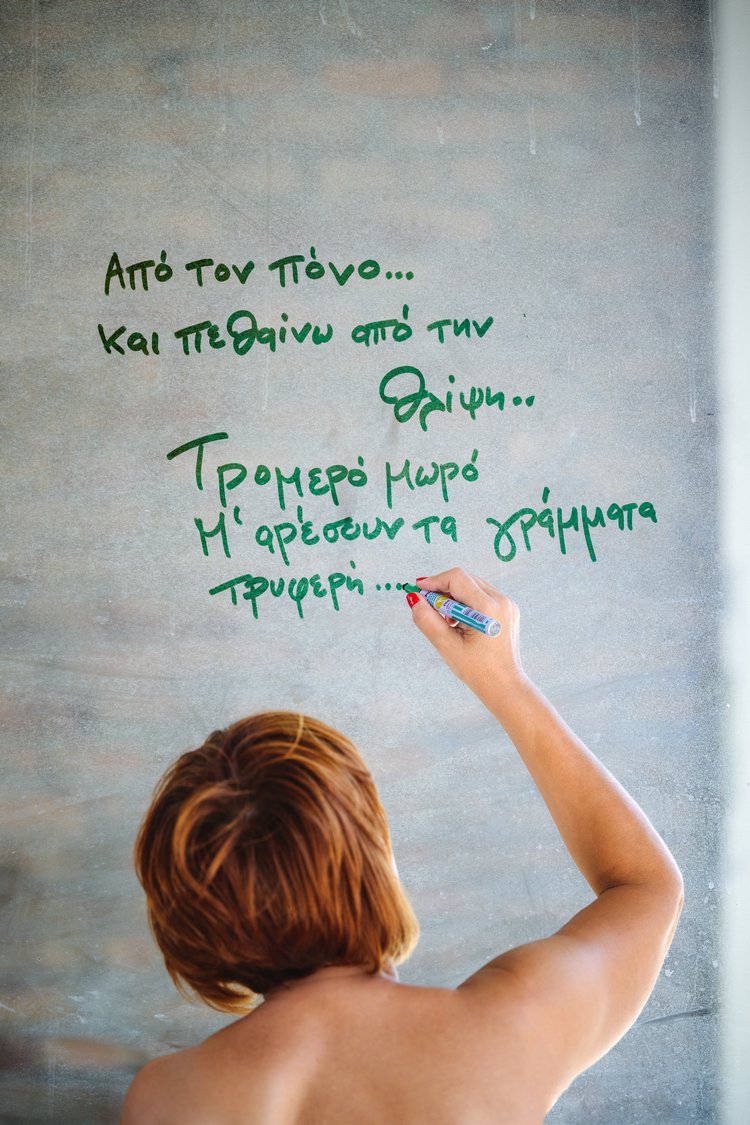 Από τον πόνο...
και πεθαίνω από την
θλίψη..
Τρομερό μωρό
Μ' αρέσουν τα γράμματα
τρυφερή...